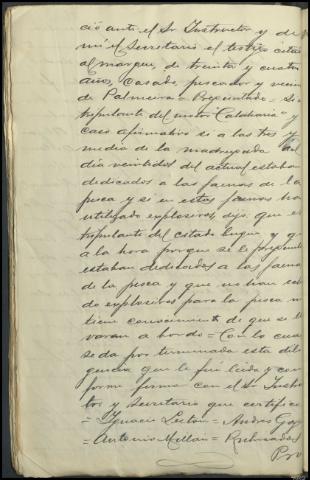 ció ante el Sr Instructor y de
mí el Secretario el testigo citado
al margen, de treinta y cuatro
años, casado, pescador y vecino
de Palmeira = Preguntado = Si es
tripulante del motor Catabaria y
caso afirmativo si a las tres y
media de la madrugada del
día veintidos del actual estaban
dedicados á las faenas de la
pesca y si en estas faenas han
utilizado explosivos, dijo: que es
tripulante del citado buque y que
a la hora porque se le pregunta
estaban dedicados a las faenas
de la pesca y que no han usa-
do explosivos para la pesca ni
tiene conocimiento de que se lle-
varan a bordo = Con lo cual
se da por terminada esta dili-
gencia que le fué leida y con-
forme firma con el Sr Instruc-
tor y Secretario que certifico
= Ignacio = Andrés
= Antonio Millán = Rubricados